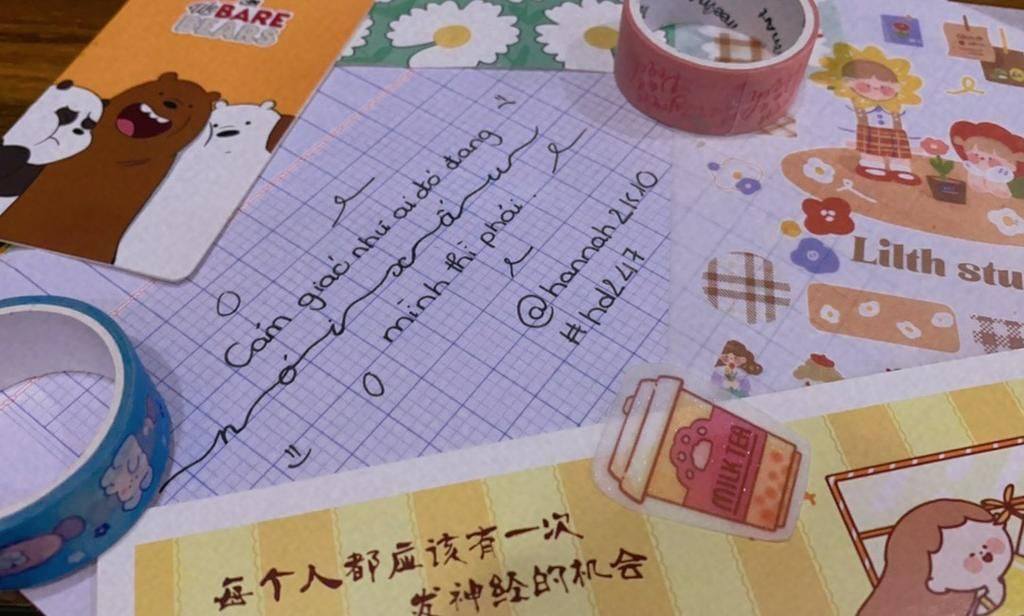 We
BARE
BEARS
Cảm giác như ai đó đang
nói xấu
mình thì phải.
@hannah2k10
#hdl247
Lilth stu
MILK TEA
每个人都应该有一次
发神经的机会